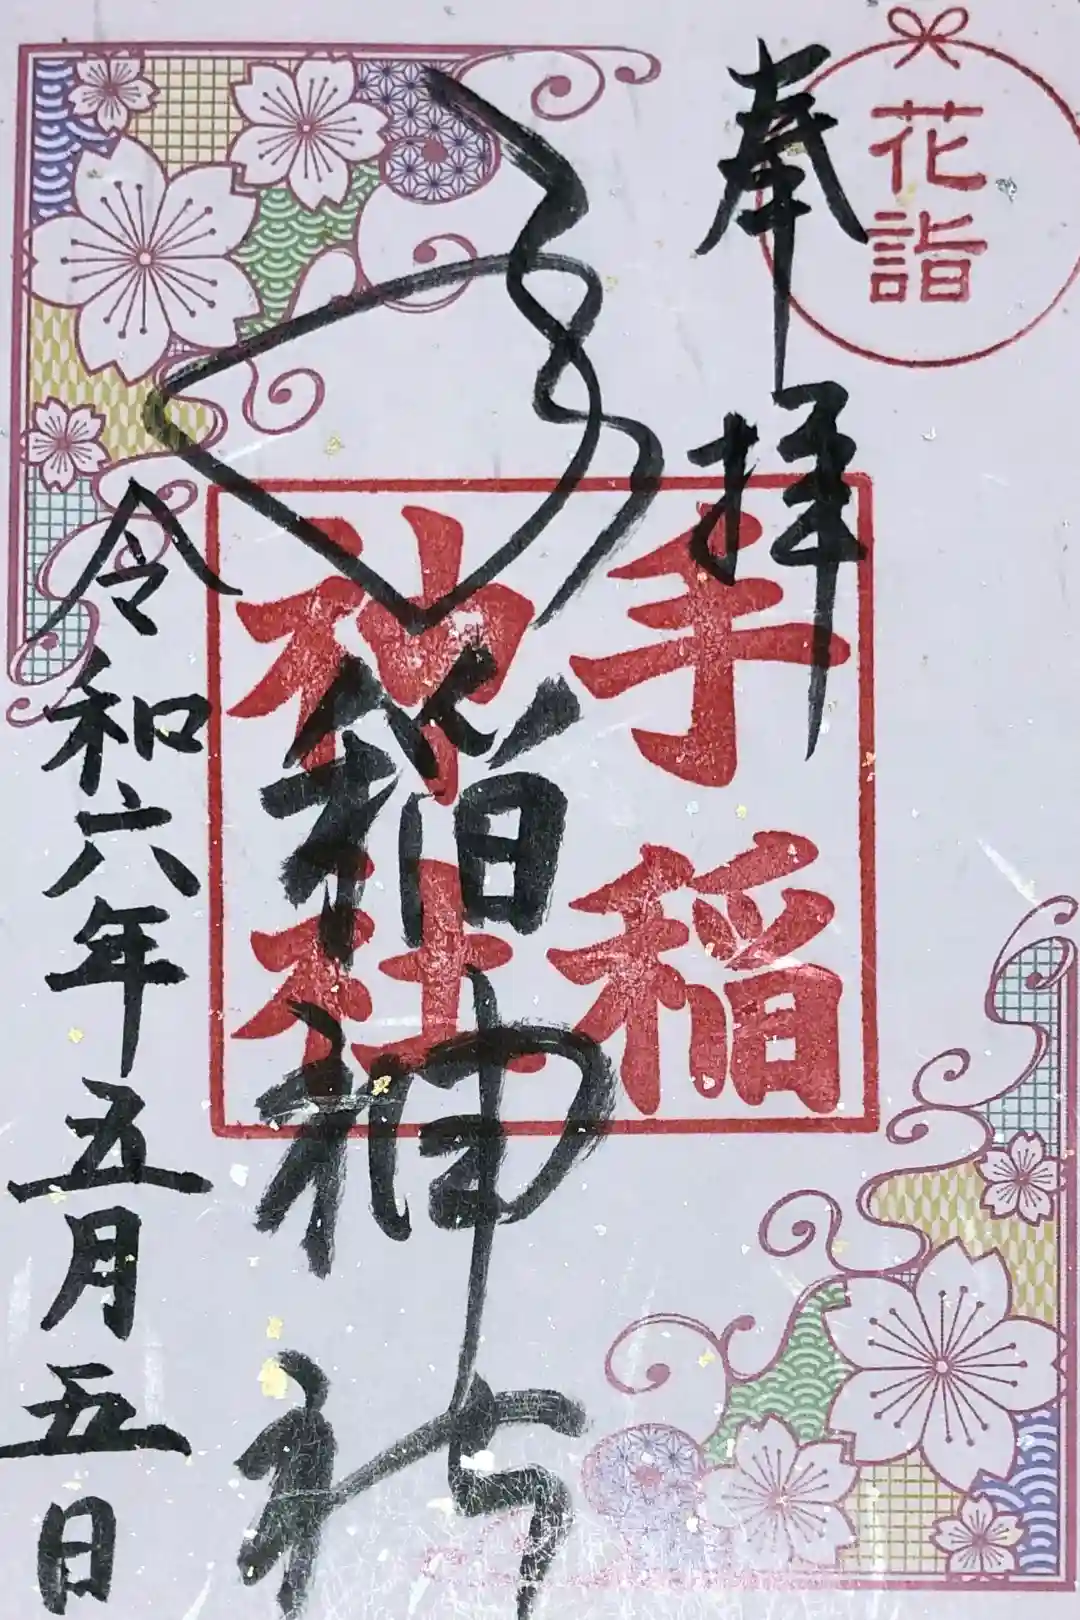 花詣
奉拝
手稲
神社
手稲神社
令和六年五月五日